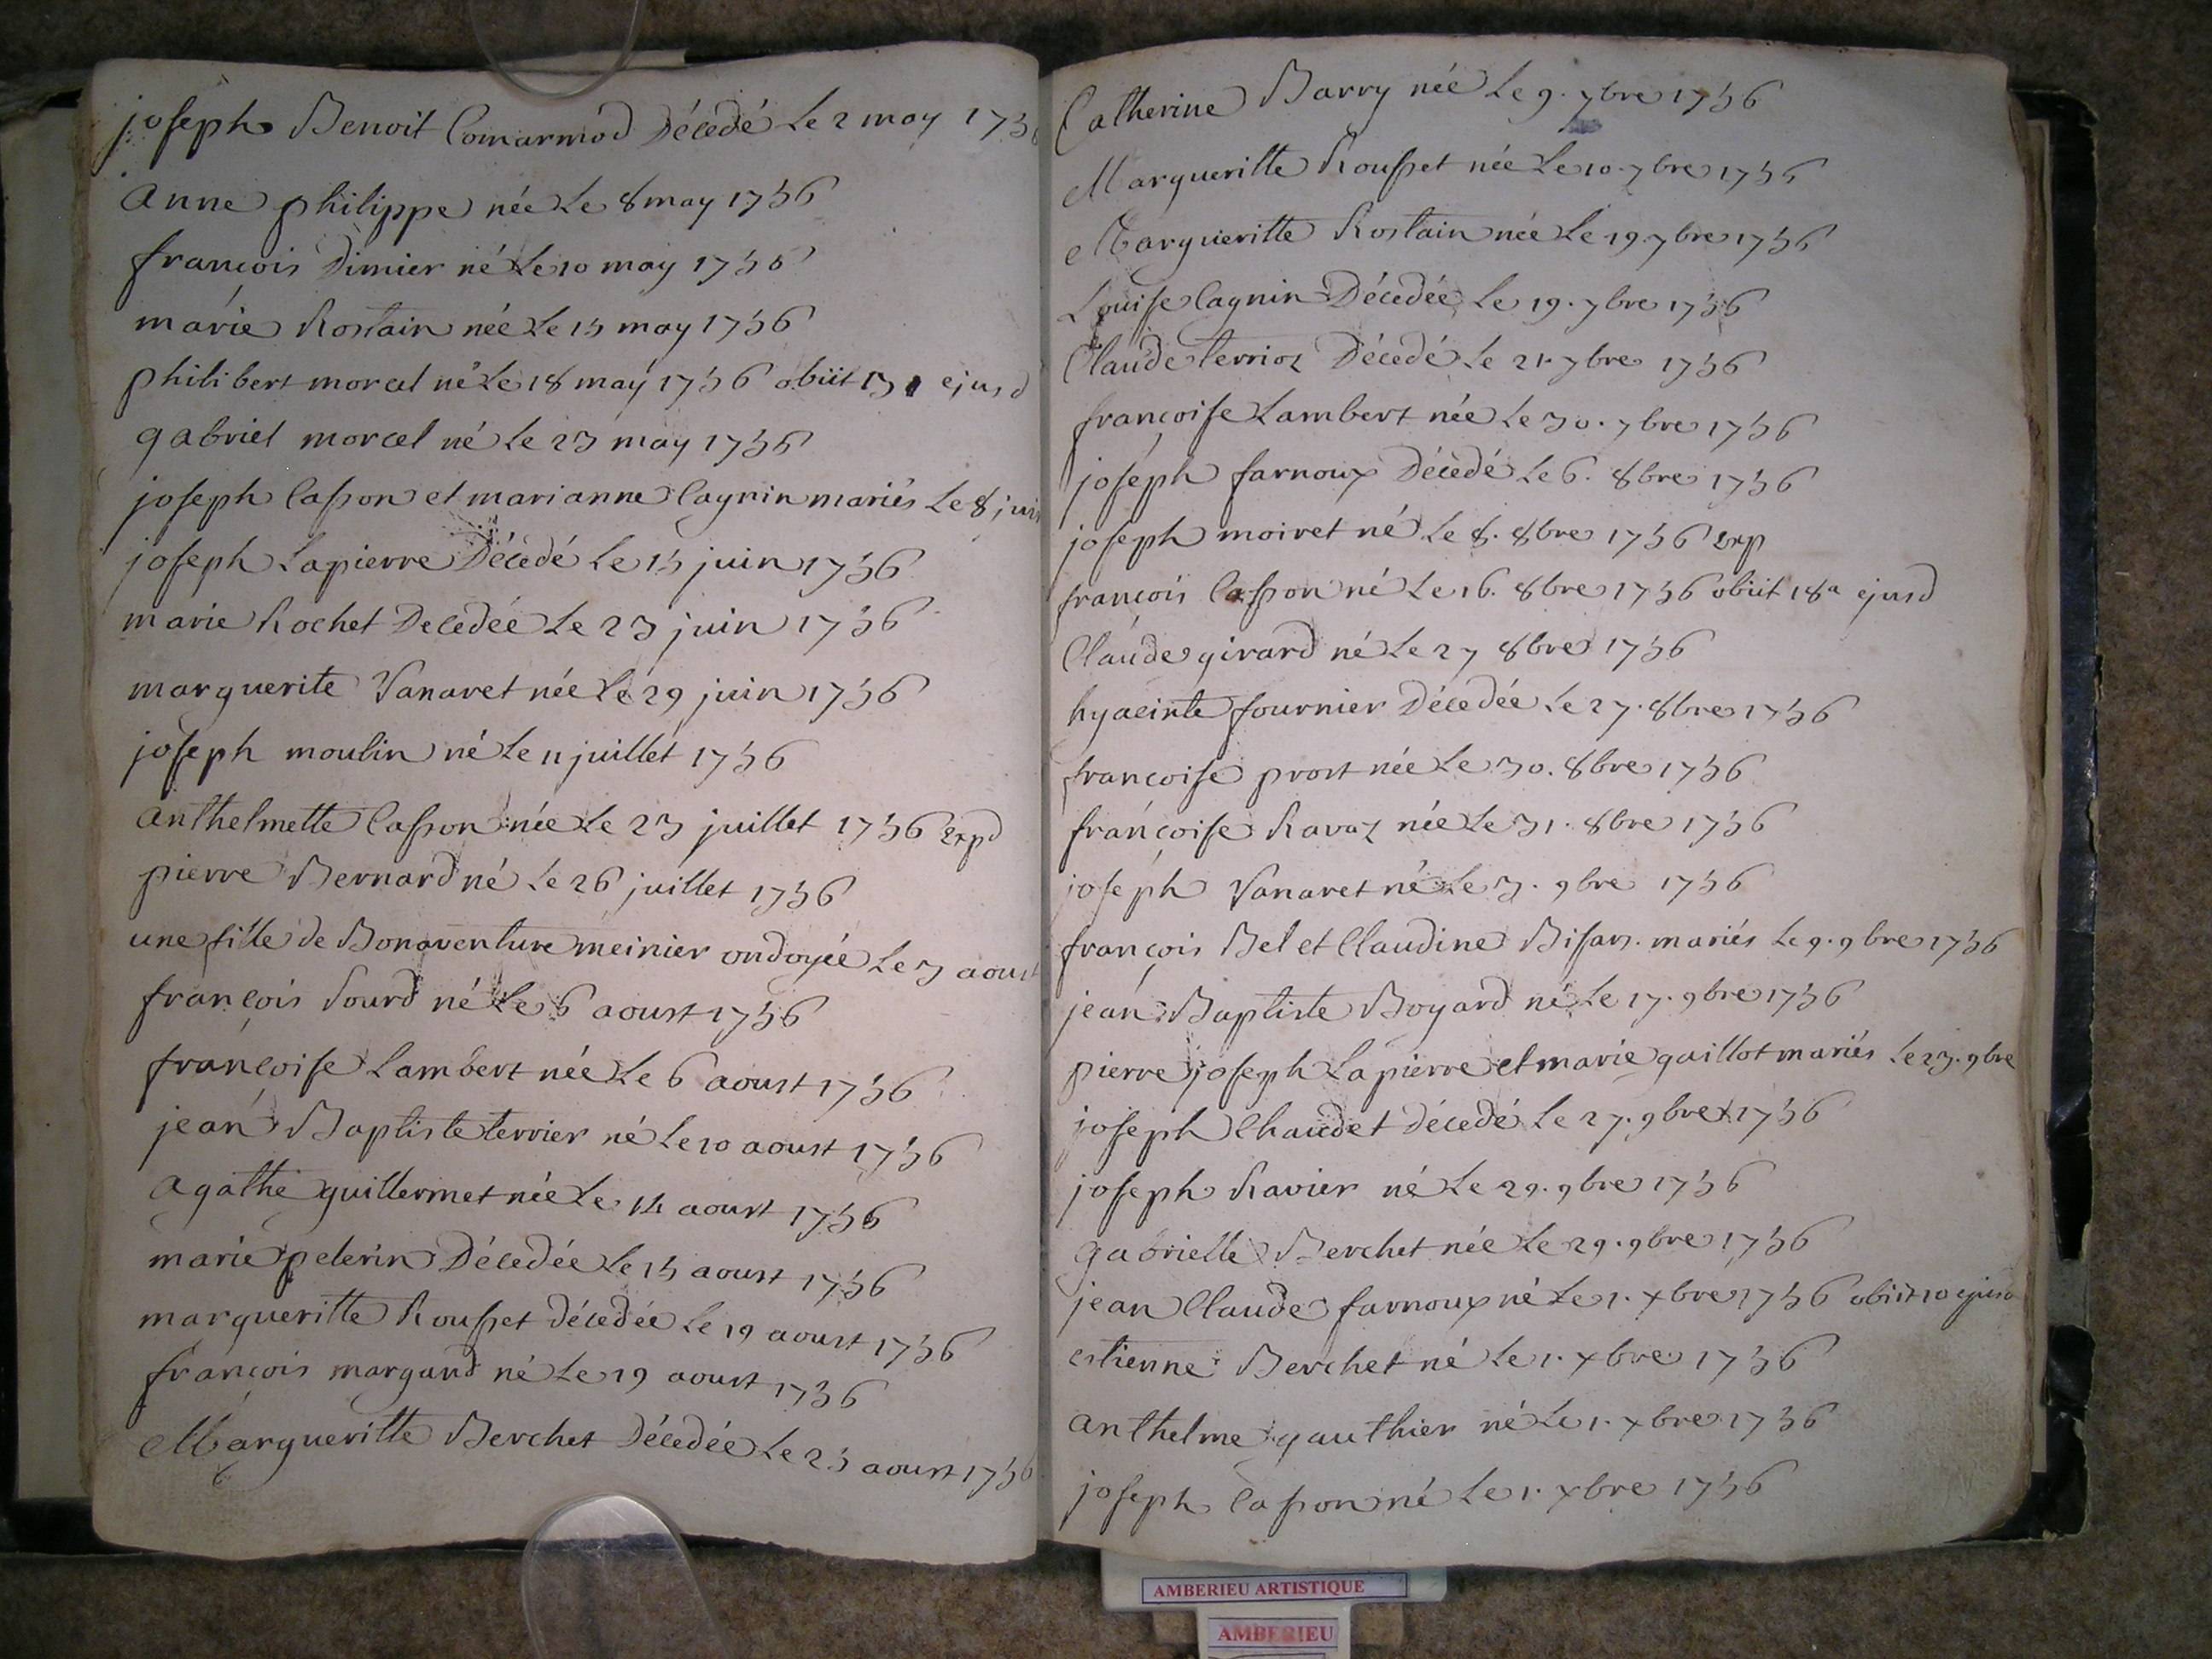 joseph Benoit Comarmod Décedé Le 2 may 1756
anne philippe née Le 8 may 1756
françois Dimier né Le 10 may 1756
marie Rostain née Le 15 may 1756
philibert morcel né Le 18 may 1756 obiit ejusd
gabriel morcel né Le 23 may 1756
joseph Casson et marianne Cagnin mariés Le 8 juin
joseph Lapierre Décedé Le 15 juin 1756
marie Rochet Decedée Le 23 juin 1756
marguerite Vanaret née Le 29 juin 1756
joseph moulin né Le 11 juillet 1756
anthelmette Casson née Le 23 juillet 1756 Expd
pierre Bernard né Le 26 juillet 1756
une fille de Bonaventure meinier ondoyée Le 3 aoust
françois Sourd né Le 6 aoust 1756
françoise Lambert née Le 6 aoust 1756
jean Baptiste terrier né Le 10 aoust 1756
agathe guillermet née Le 14 aoust 1756
marie pelerin Décedée Le 15 aoust 1756
margueritte Rousset décedée Le 19 aoust 1756
françois margand né Le 19 aoust 1756
Margueritte Berchet Décedée Le 25 aoust 1756
Catherine Barry née Le 9. 7bre 1756
Margueritte Rousset née Le 10. 7bre 1756
Margueritte Rostain née Le 19. 7bre 1756
Louise Cagnin Décedée Le 19. 7bre 1756
Claude terrioz Décedé Le 21. 7bre 1756
françoise Lambert née Le 30. 7bre 1756
joseph farnoux Décedé Le 6. 8bre 1756
joseph moiret né Le 8. 8bre 1756 Exp
françois Casson né Le 16. 8bre 1756 obiit 18a ejusd
Claude girard né Le 27 8bre 1756
hyacinte fournier Décedée Le 27. 8bre 1756
françoise prost née Le 30. 8bre 1756
françoise Ravaz née Le 31. 8bre 1756
joseph Vanaret né Le 3. 9bre 1756
françois Bel et Claudine mariés Le 9. 9bre 1756
jean Baptiste Boyard né Le 17. 9bre 1756
pierre joseph Lapierre et marie guillot mariés Le 23. 9bre
joseph Chaudet décedé Le 27. 9bre 1756
joseph Ravier né Le 29. 9bre 1756
gabrielle Berchet née Le 29. 9bre 1756
jean Claude farnoux né Le 1. xbre 1756 obiit 10 ejusd
estienne Berchet né Le 1. xbre 1756
anthelme gauthier né Le 1. xbre 1756
joseph Casson né Le 1. xbre 1756
AMBERIEU ARTISTIQUE
AMBERIEU